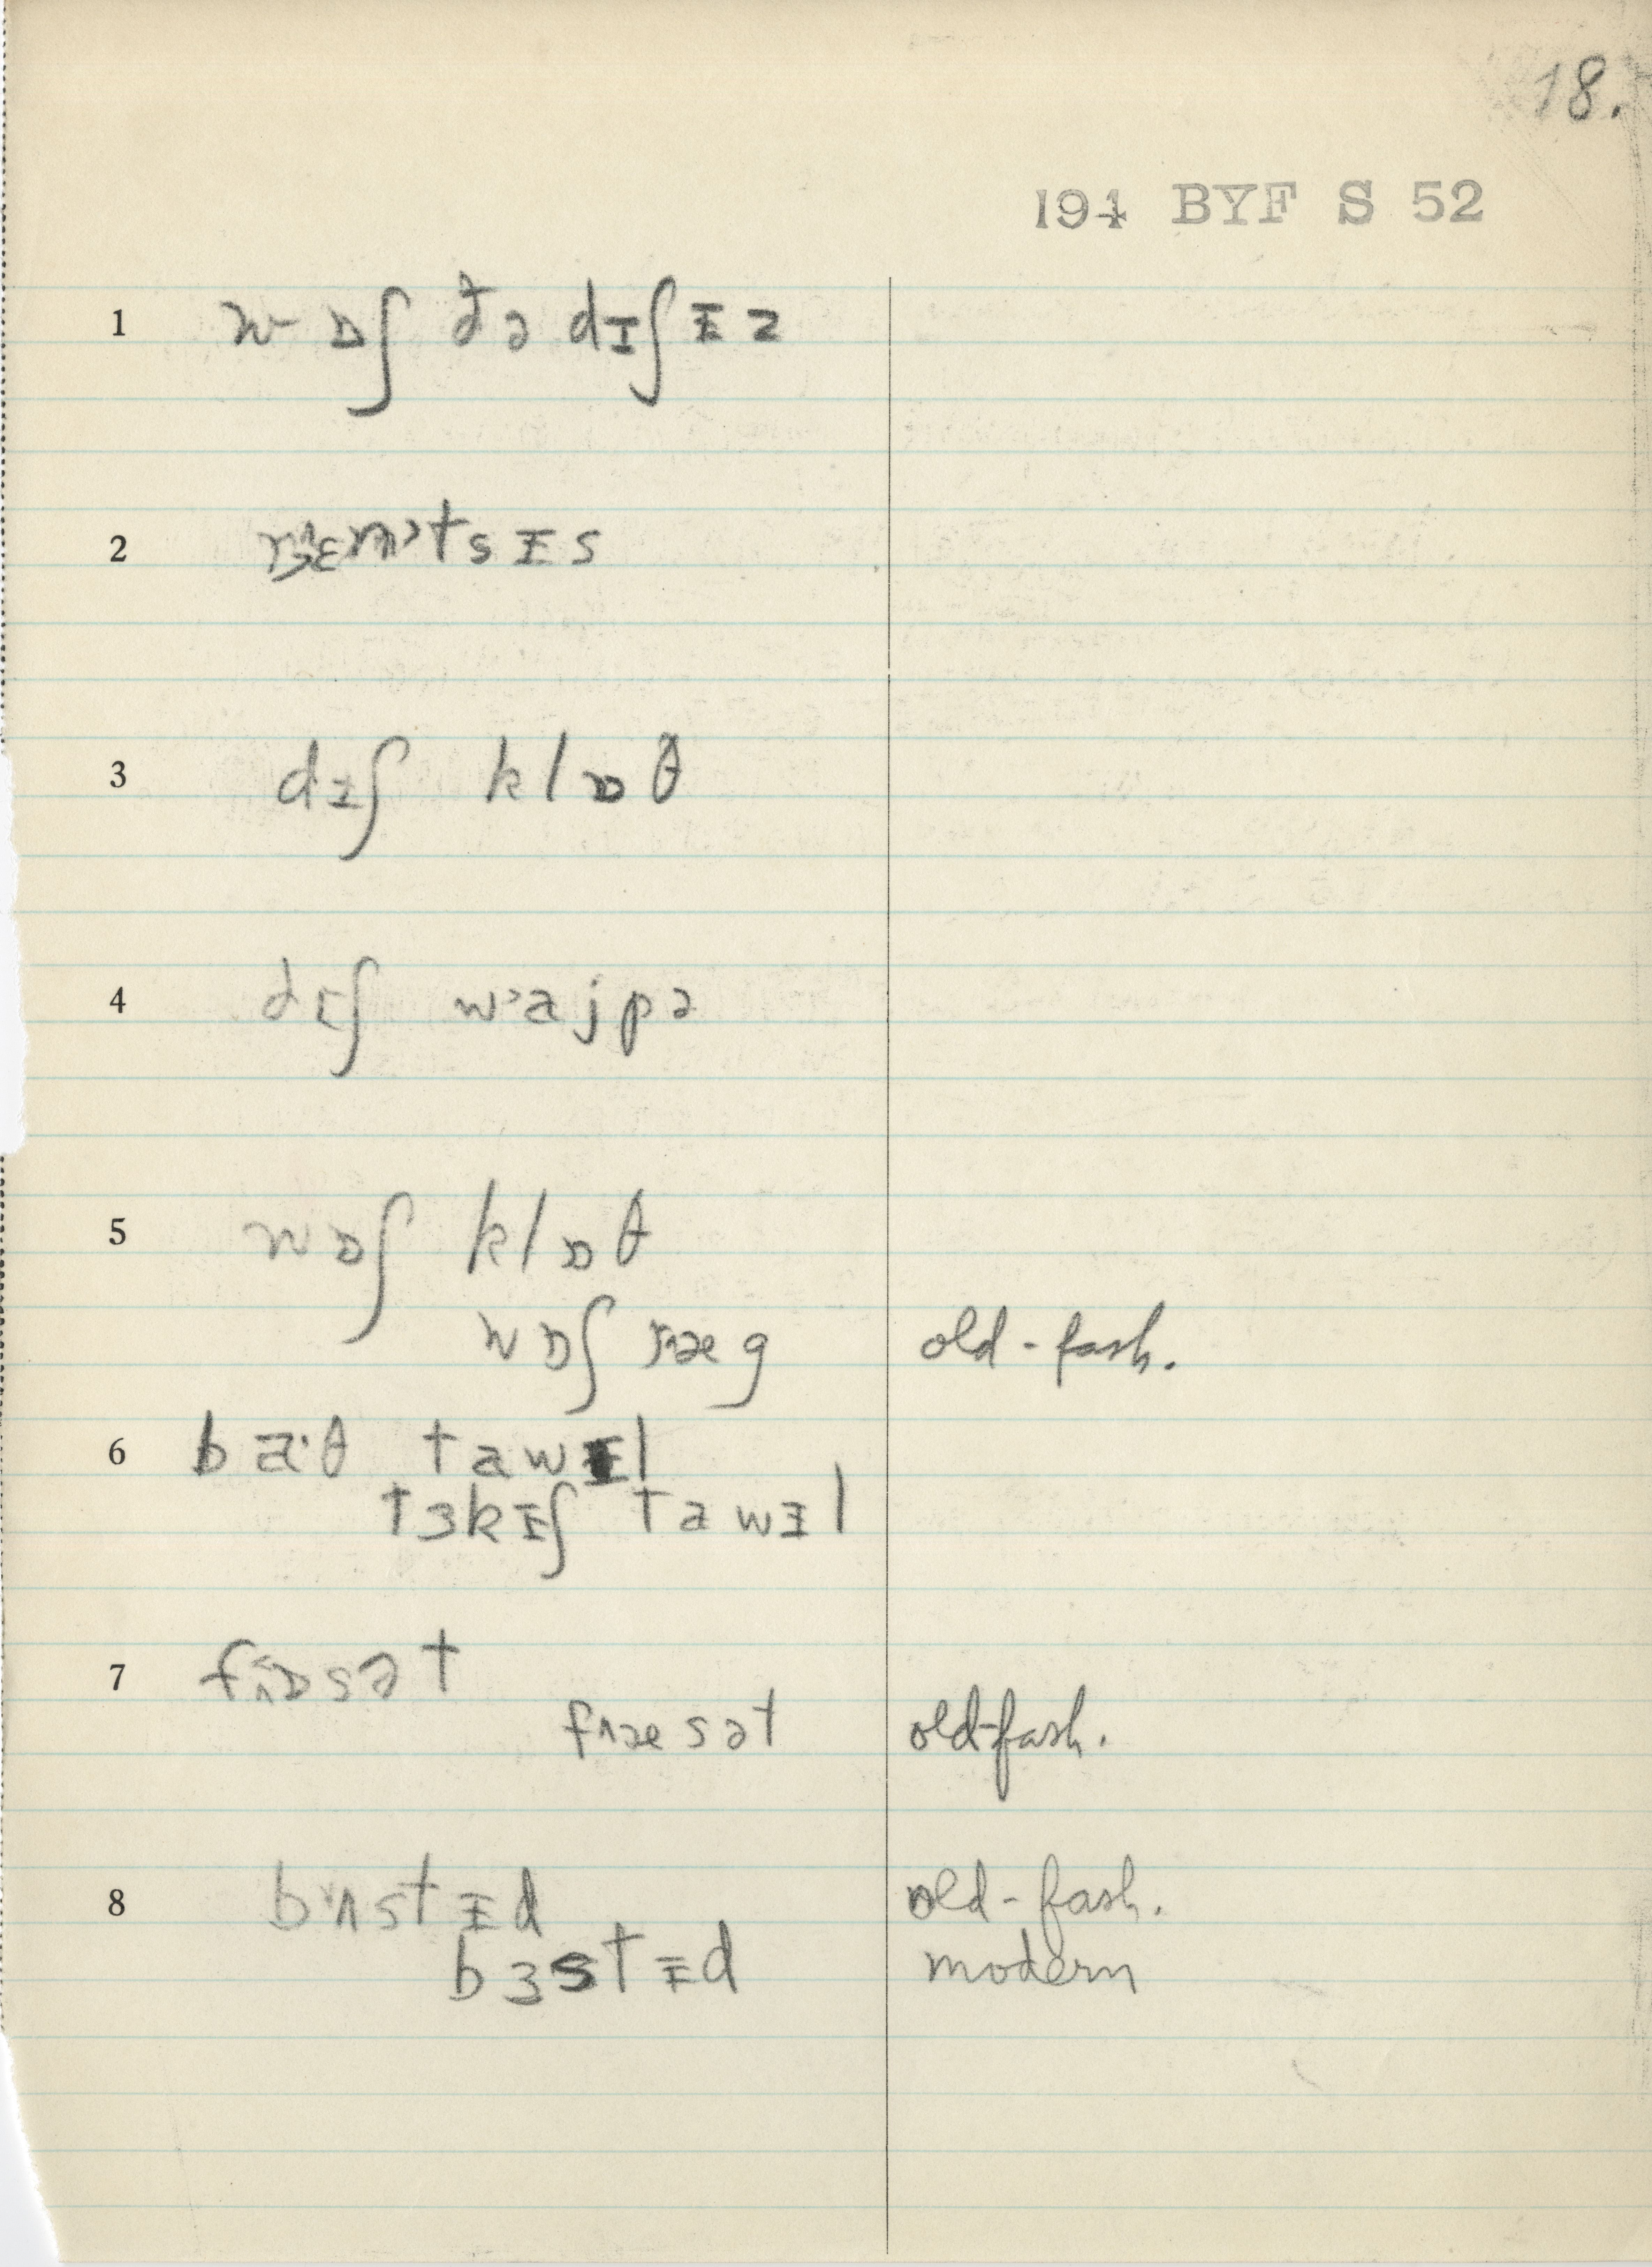 18.
194 BYF S 52
1 wɒʃ ðə dɪʃɪz
2
3 dɪʃ klɒθ
4 dɪʃ wajpə
5 wɒʃ klɒθ
wɒʃ ræg old-fash.
6 ba·θ tawɪl
tɜkɪʃ tawɪl
7 sət
sət old-fash.
8 stɪd old-fash.
bɜstɪd modern